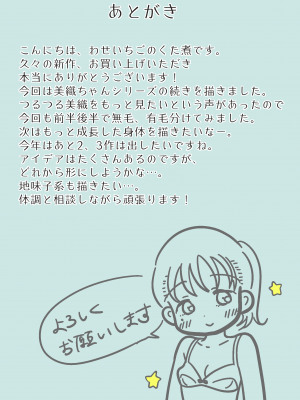 あとがき
こんにちは、わせいちごのくた煮です。
久々の新作、お買い上げいただき
本当にありがとうございます！
今回は美織シリーズの続きを描きました。
つるつる美織をもっと見たいという声があったので
今回も前半後半で無毛、有毛分けてみました。
次はもっと成長した身体を描きたいなー。
今年はあと2、3作は出したいですね。
アイデアはたくさんあるのですが、
どれから形にしようかな…。
地味子系も描きたい…。
体調と相談しながら頑張ります！
よろしく
お願いします